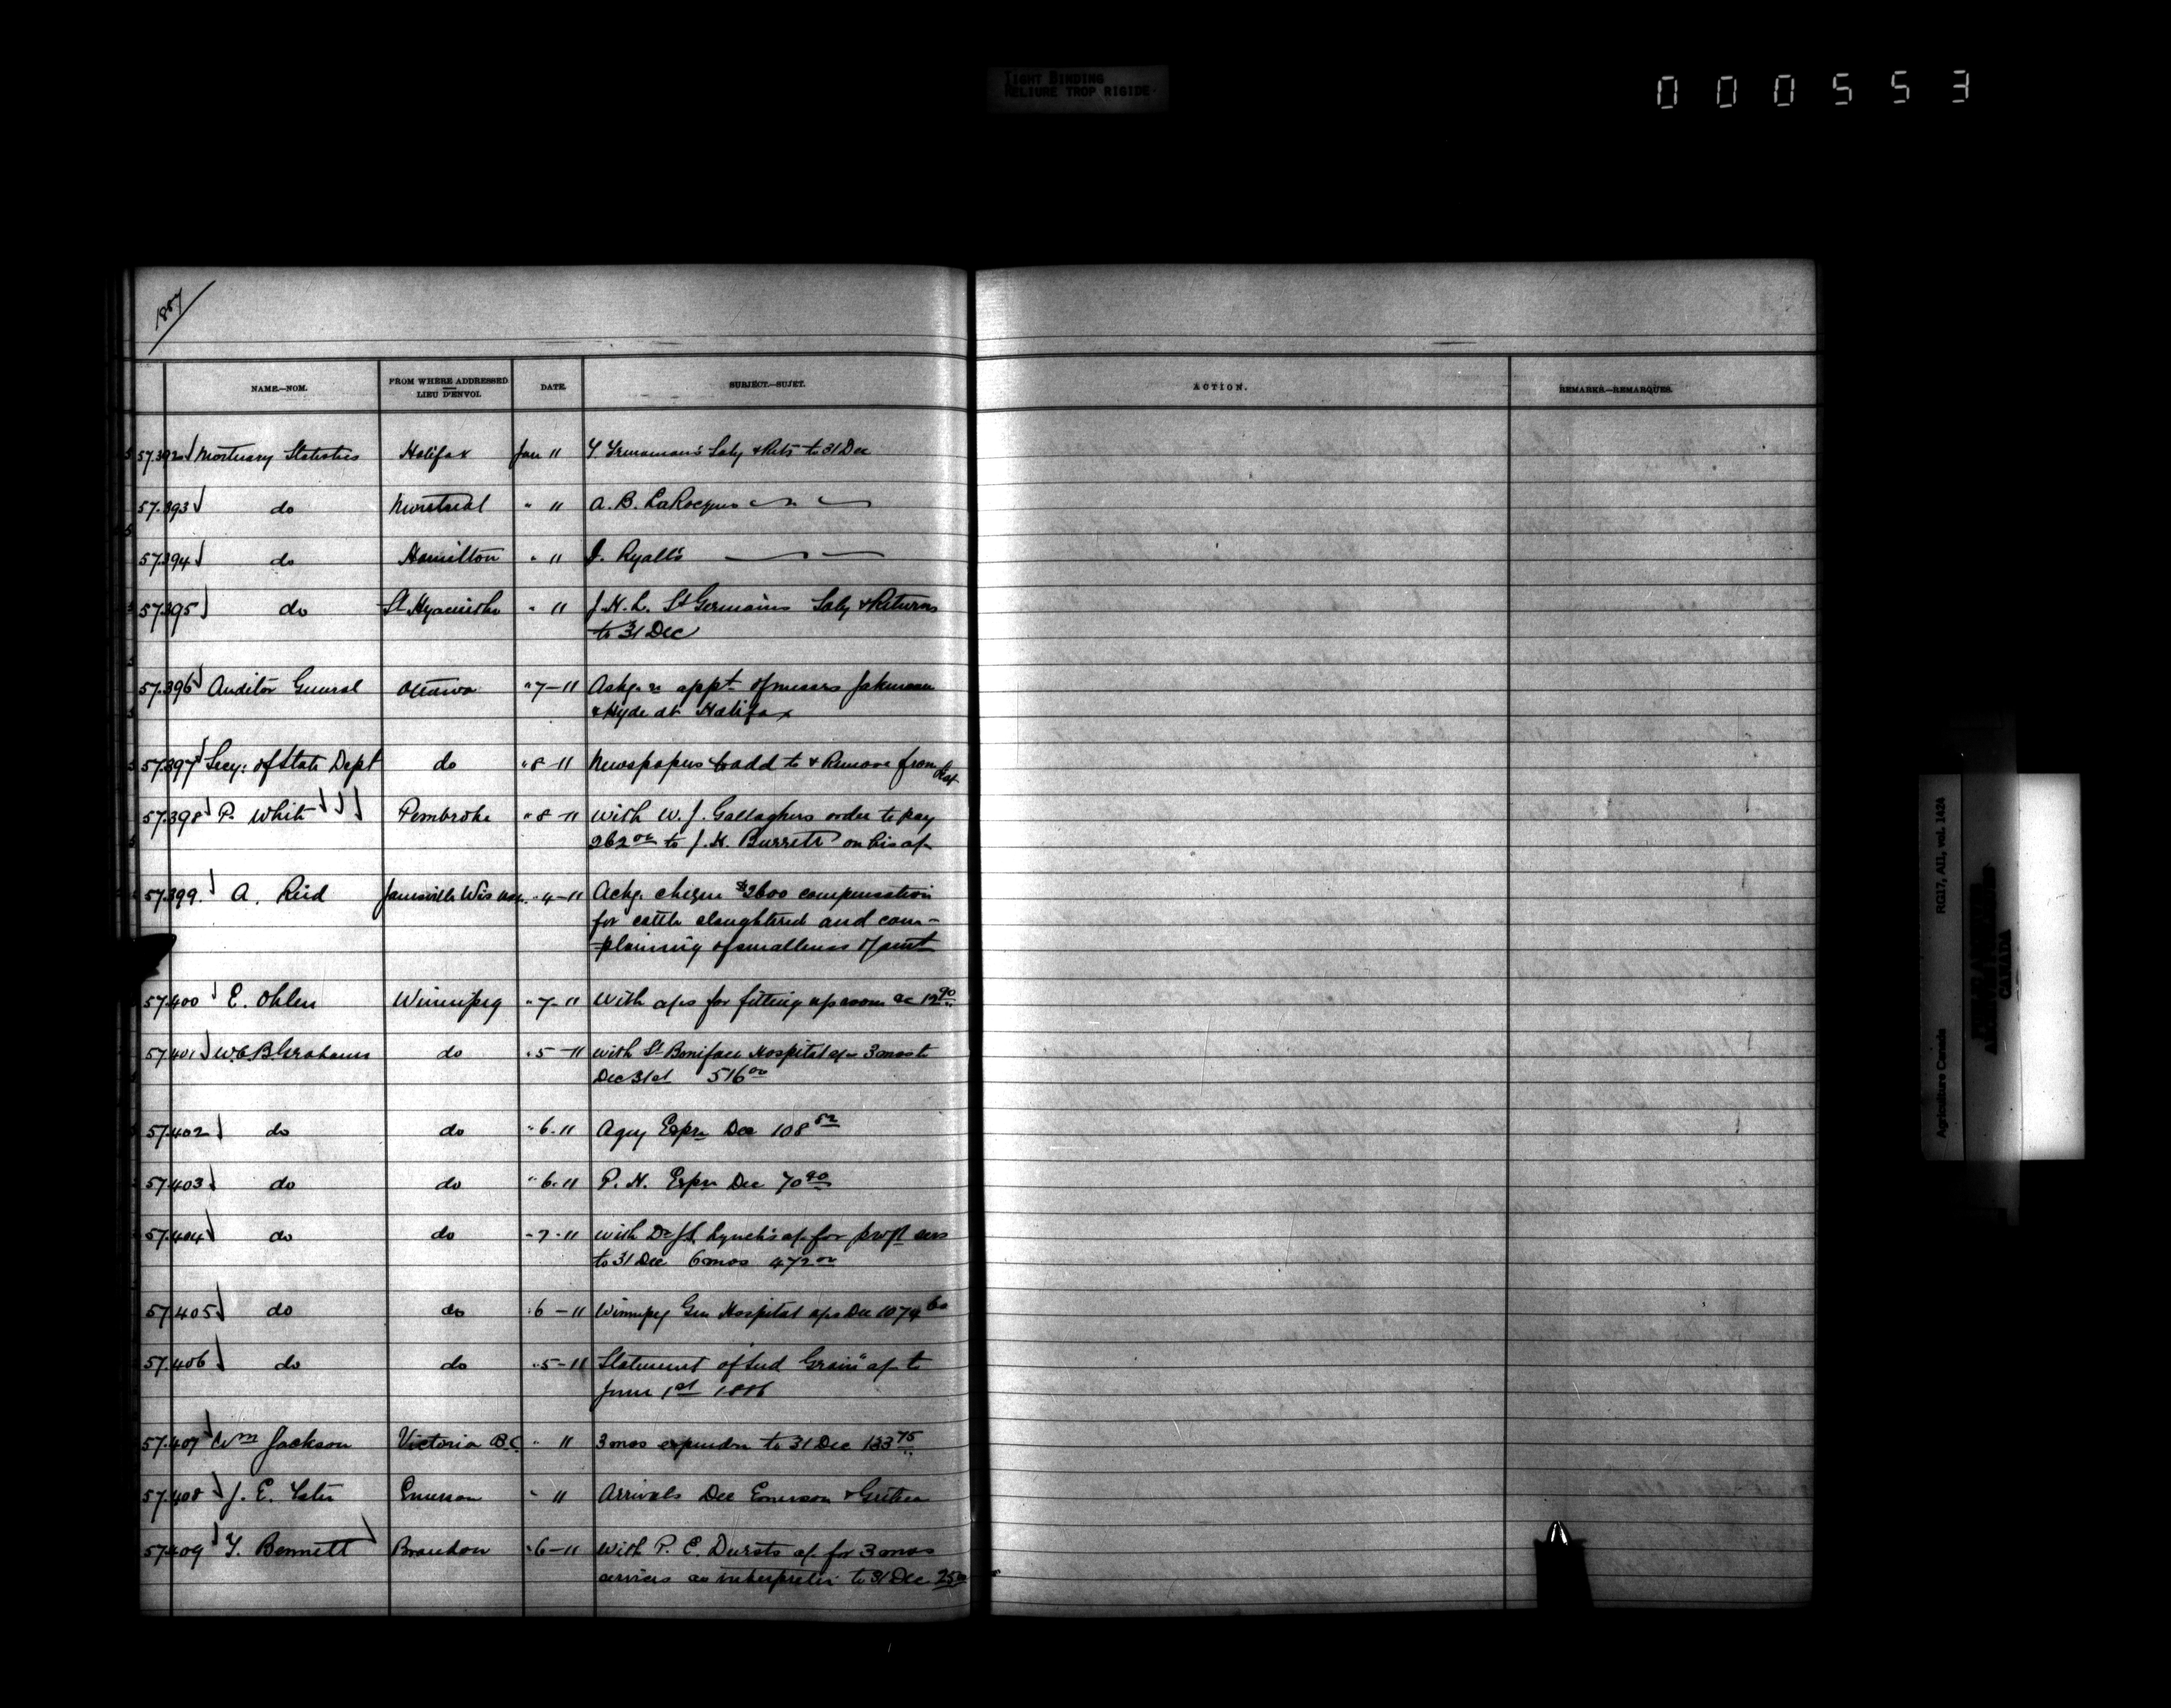 TIGHT BINDING
RELIURE TROP RIGIDE
000553
1887
NAME.—NOM. FROM WHERE ADDRESSED LIEU D'ENVOI. DATE. SUBJECT.—SUJET. ACTION. REMARKS.—REMARQUES.
57.392 Mortuary Statistics Halifax Jan 11 Saly & Rets to 31 Dec
57.393 do Montreal " 11 A. B. LaRocques
57.394 do Hamilton " 11 I. Ryall's
57.395 do St Hyacinthe " 11 J. H. L. St Germains Saly & Returns
to 31 Dec
57.396 Auditor General Ottawa " 7-11 appt of messrs Jakeman
& Hyde at Halifax
57.397 Secy: of State Dept do " 8-11 Newspapers to add to & Remove from list
57.398 P. White Pembroke " 8-11 with W. J. Gallaghers order to pay
262 00 to J. H. Burritt on his a/c
57.399 A. Reid Janesville Wis " 4-11 Ackg. cheque $2600 compensation
for cattle slaughtered and com-
plaining of smallness of amt
57.400 E. Ohlen Winnipeg " 7-11 With a/cs for fitting up room &c 12 90
57.401 W. C. B. Grahame do " 5-11 with St Boniface Hospital a/c 3 mos to
Dec 31st 516 00
57.402 do do " 6-11 Agcy Expn Dec 108 52
57.403 do do " 6-11 P. H. Expn Dec 70 90
57.404 do do " 7-11 with Dr Lynch's a/c for profl sers
to 31 Dec 6 mos 472 00
57.405 do do " 6-11 Winnipeg Gen Hospital a/cs Dec 1079 60
57.406 do do " 5-11 Statement of Seed Grain" a/c to
June 1st 1886
57.407 Wm Jackson Victoria B.C. " 11 3 mos expendre to 31 Dec 133 75
57.408 J. E. Têtu Emerson " 11 Arrivals Dec Emerson & Gretna
57.409 T. Bennett Brandon " 6-11 With P. E. Dursts a/c for 3 mos
services as interpreter to 31 Dec 25 00
Agriculture Canada RG17, AII, vol. 1424
CANADA